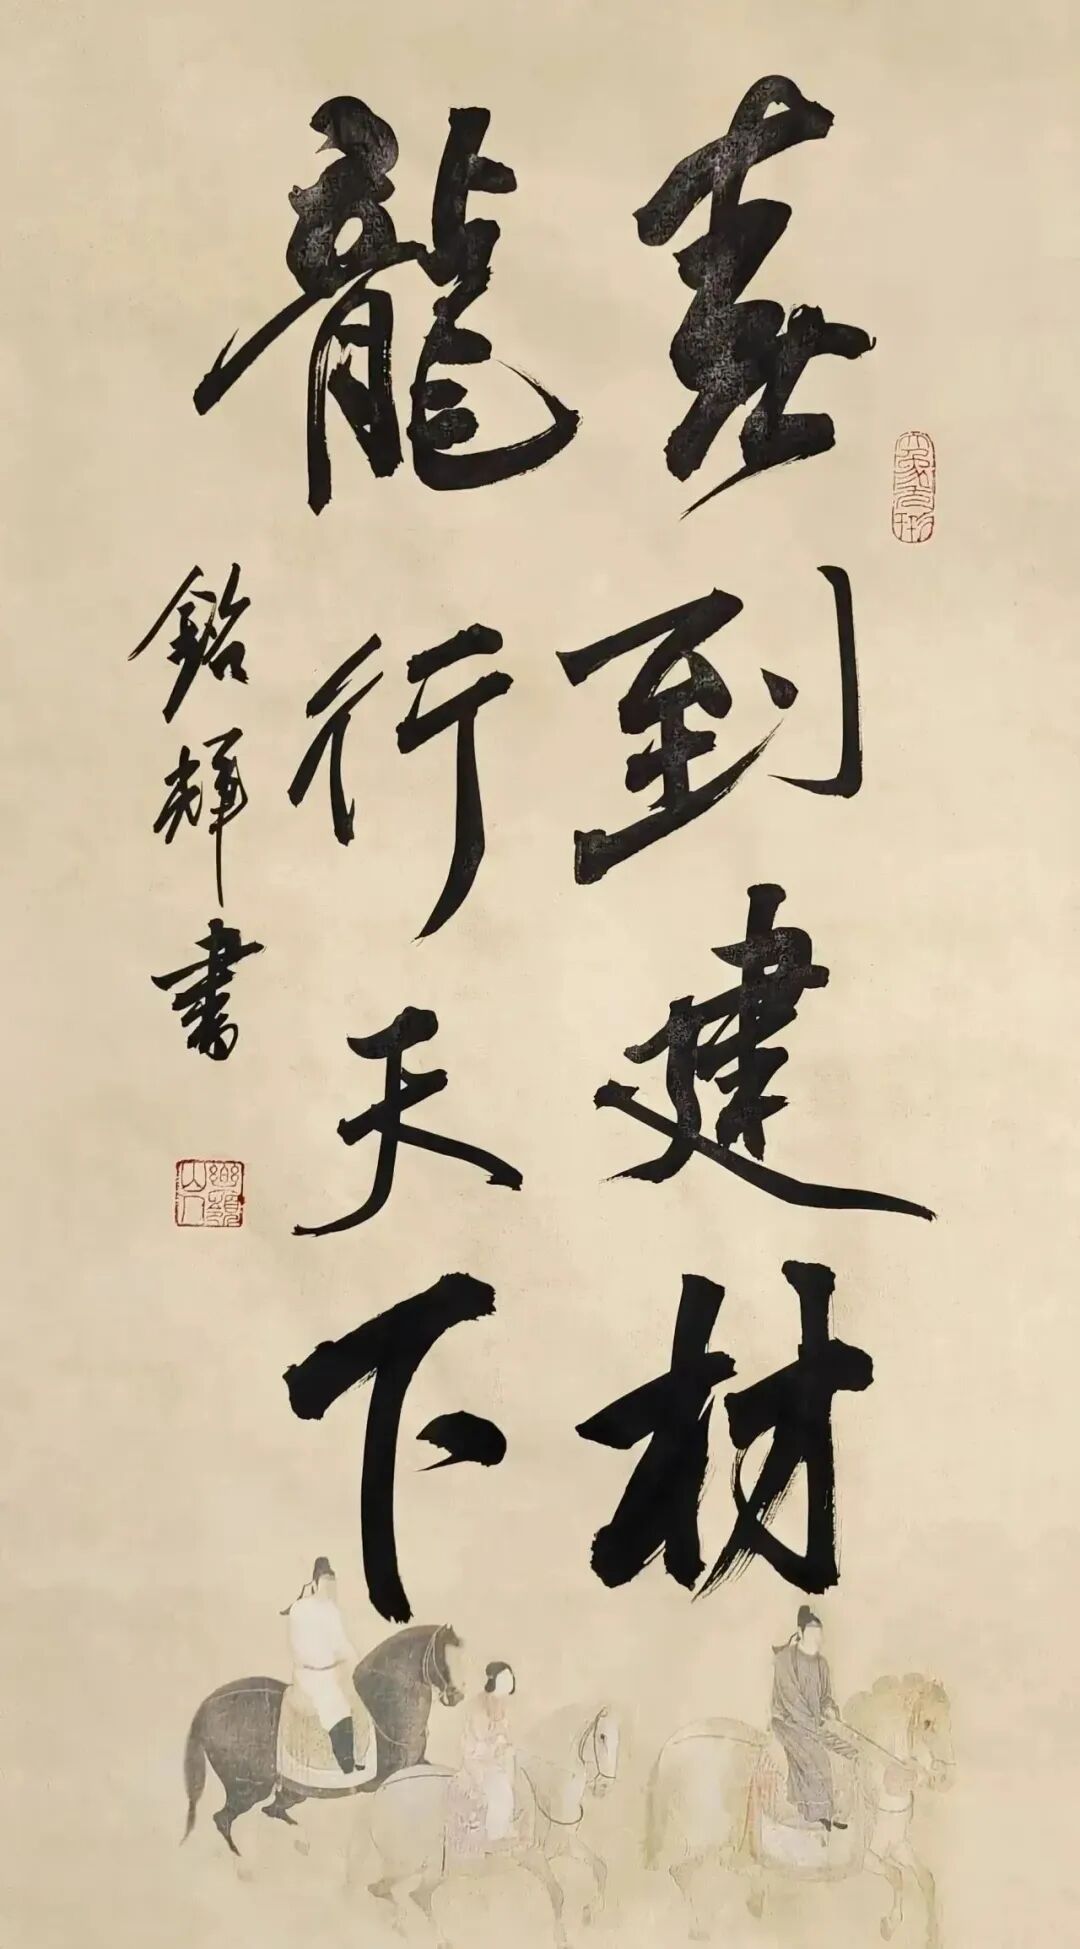 喜到建材
龍行天下
銘輝書